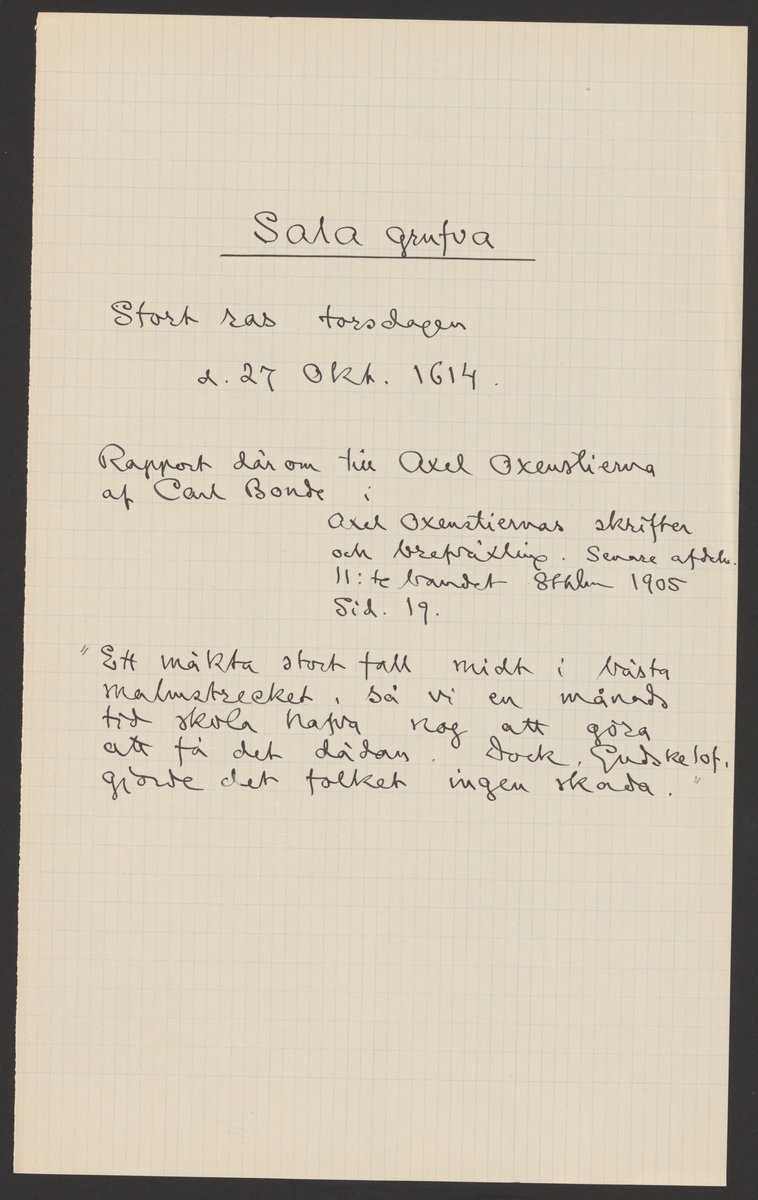 Sala grufva
Stort ras torsdagen
d. 27 Okt. 1614.
Rapport där om till Axel Oxenstierna
af Carl Bonde i
Axel Oxenstiernas skrifter
och brefväxling. Senare afdeln.
11:te bandet Sthlm 1905
Sid. 19.
"Ett mäkta stort fall midt i bästa
malmstrecket, så vi en månads
tid skola hafva nog att göra
att få det dädan. Dock, Gudskelof,
gjorde det folket ingen skada."